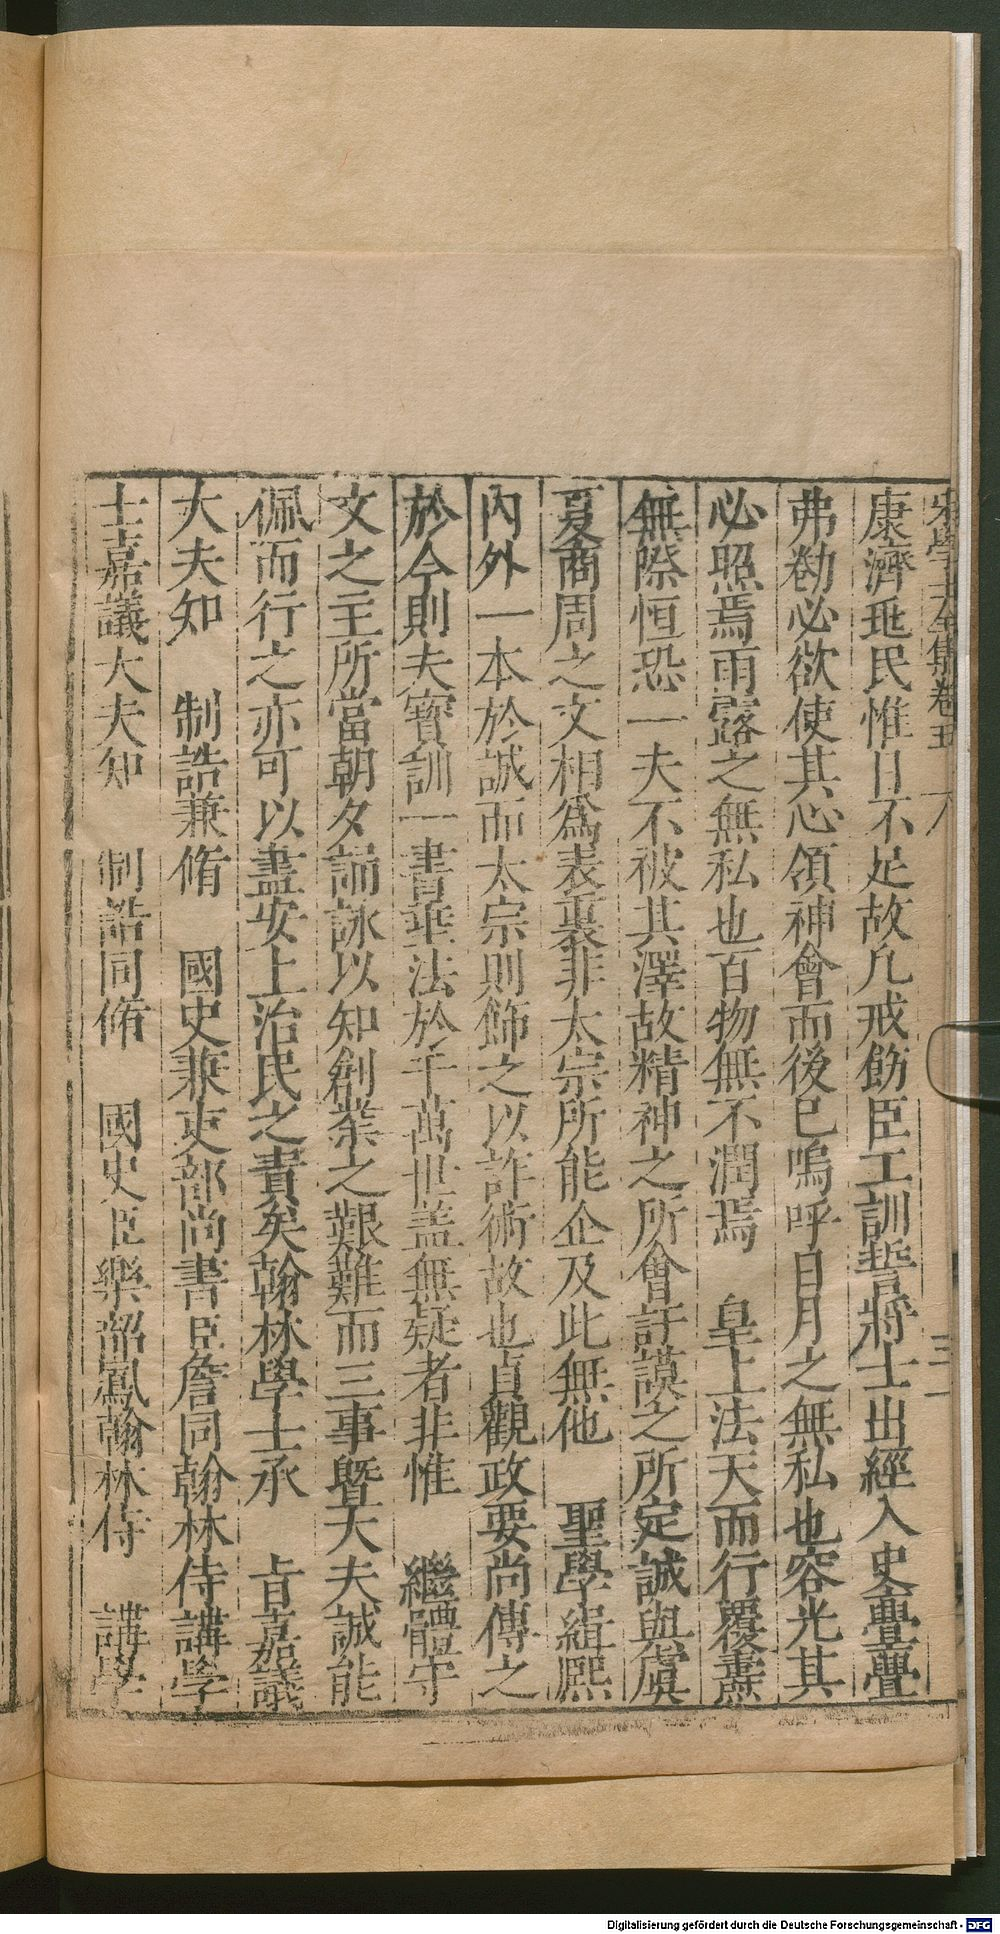 宋學士全集卷五 八 三一
康濟兆民惟日不足故凡戒飭臣工訓誓將士出經入史亹亹
弗勌必欲使其心領神會而後已嗚呼日月之無私也容光其
必照焉雨露之無私也百物無不潤焉 皇上法天而行覆燾
無際恒恐一夫不被其澤故精神之所會訏謨之所定誠與虞
夏商周之文相爲表裏非太宗所能企及此無他 聖學緝熈
內外一本於誠而太宗則飾之以詐術故也貞觀政要尚傳之
於今則夫寶訓一書垂法於千萬世盖無疑者非惟 繼體守
文之主所當朝夕誦詠以知創業之艱難而三事曁大夫誠能
佩而行之亦可以盡安上治民之責矣翰林學士承 旨嘉議
大夫知 制誥兼脩 國史兼吏部尚書臣詹同翰林侍講學
士嘉議大夫知 制誥同脩 國史臣樂韶鳳翰林侍 講學
Digitalisierung gefördert durch die Deutsche Forschungsgemeinschaft - DFG